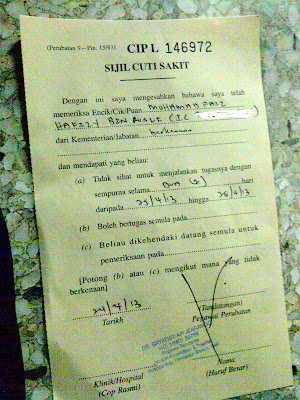 (Perubatan 9—Pin. 15/93) CIP L 146972
SIJIL CUTI SAKIT
Dengan ini saya mengesahkan bahawa saya telah
memeriksa Encik/Cik/Puan MOHAMAD FAIZ
HAFIZZY BIN (IC )
dari Kementerian/Jabatan berkenaan
dan mendapati yang beliau:
(a) Tidak sihat untuk menjalankan tugasnya dengan
sempurna selama DUA (2) hari
daripada 25/4/13 hingga 26/4/13
(b) Boleh bertugas semula pada
(c) Beliau dikehendaki datang semula untuk
pemeriksaan pada
[Potong (b) atau (c) mengikut mana yang tidak
berkenaan]
24/4/13
Tarikh
(Tandatangan)
Pegawai Perubatan
Klinik/Hospital
(Cop Rasmi)
Nama
(Huruf Besar)